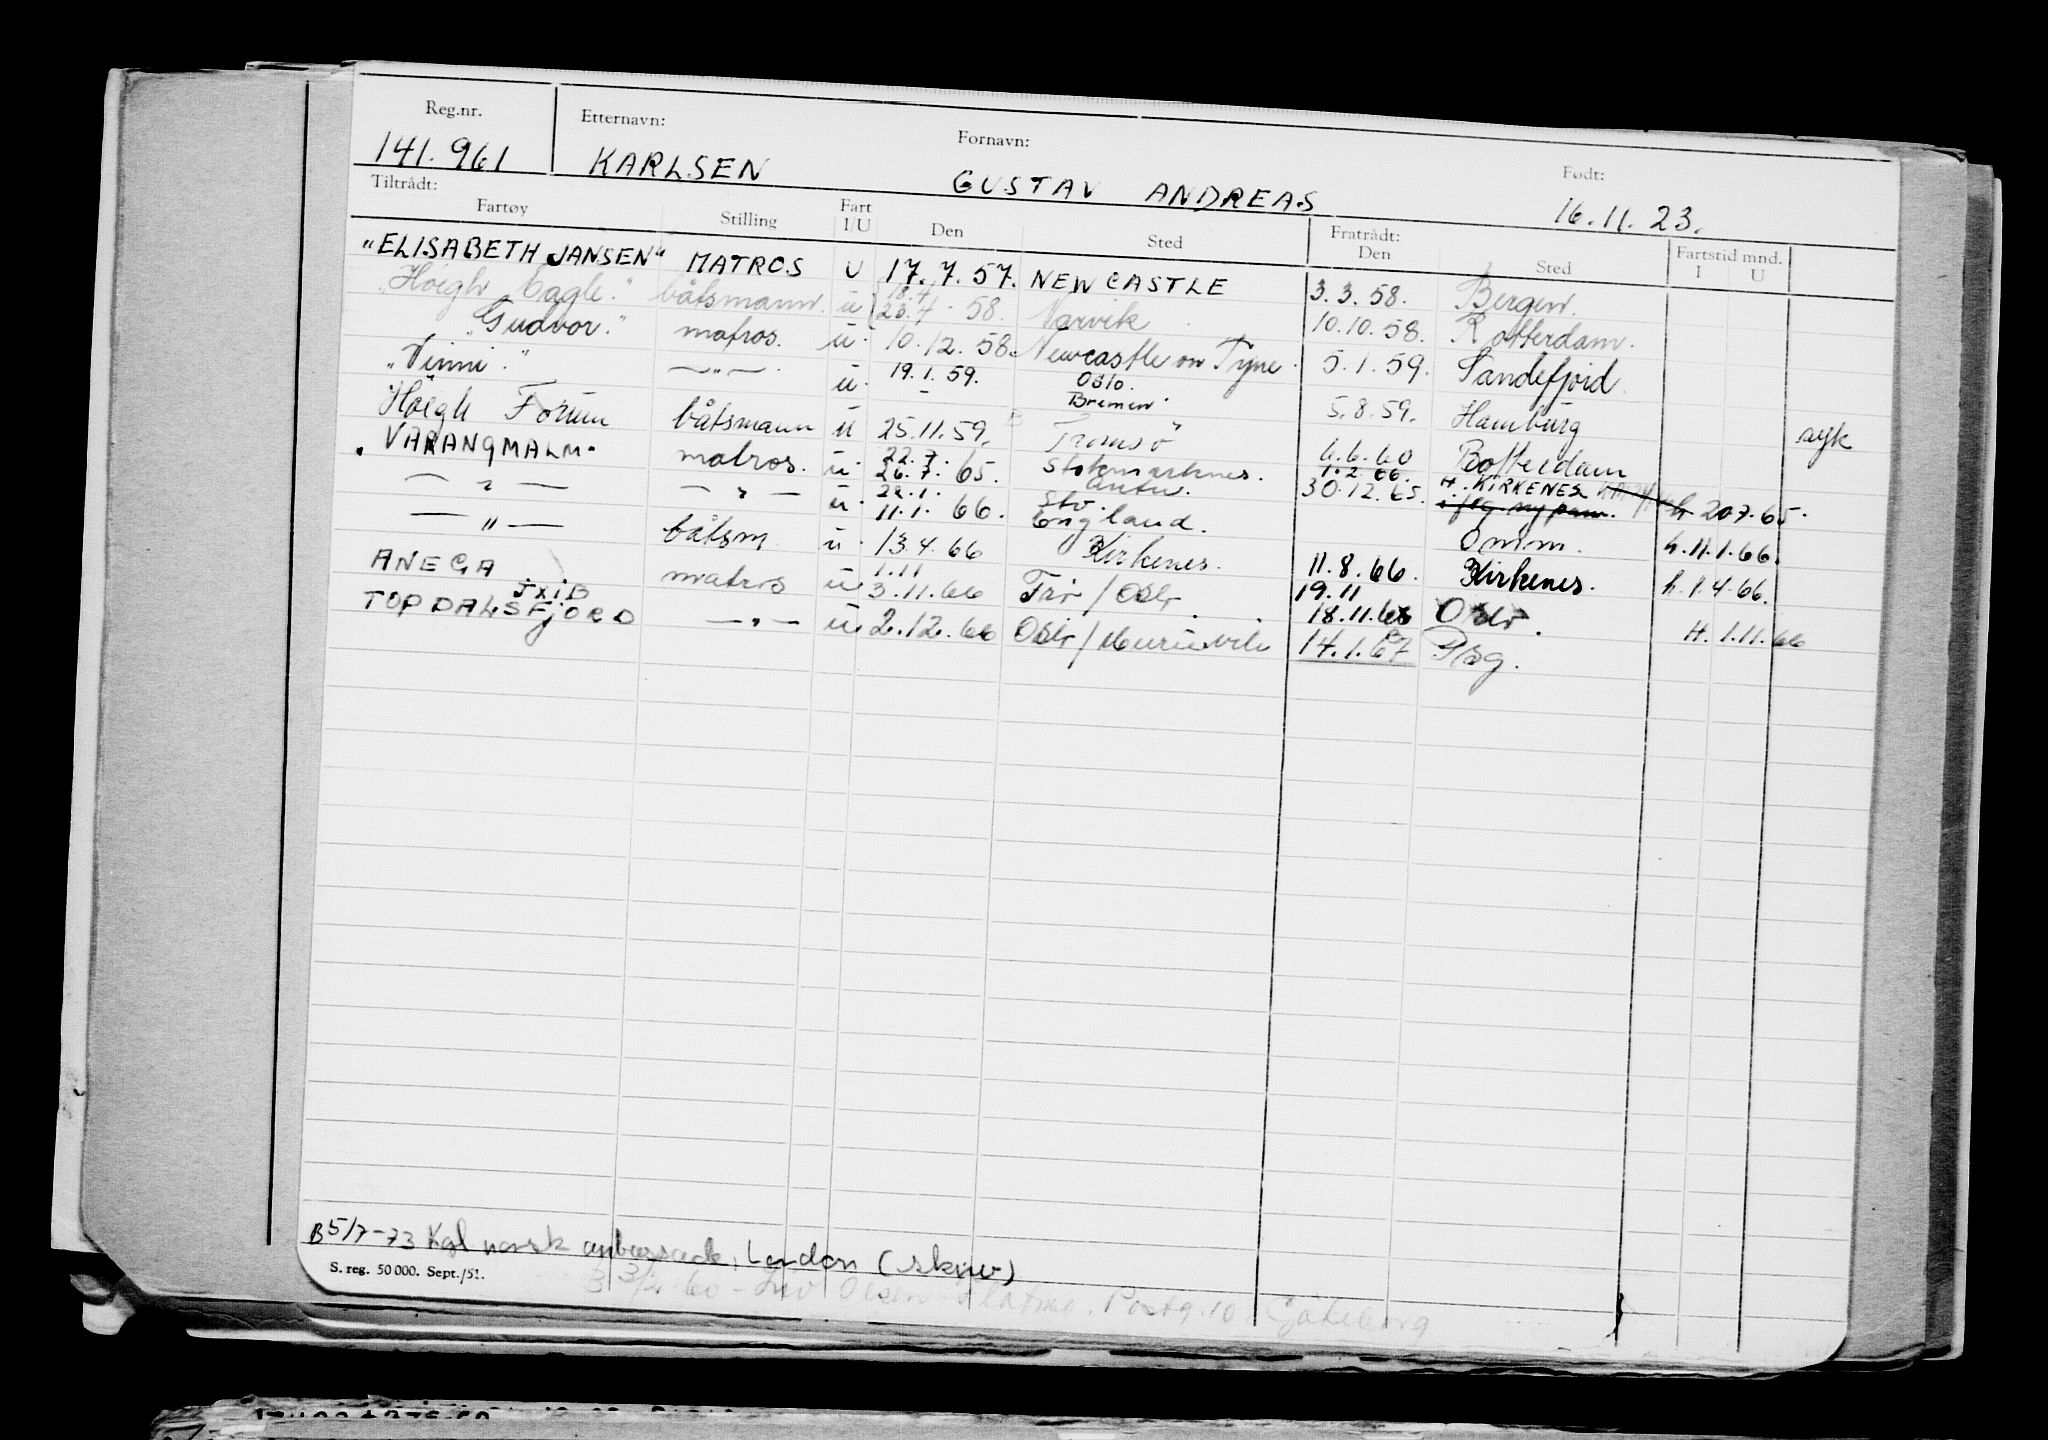 Reg.nr. Etternavn: Fornavn: Født:
141.961 KARLSEN GUSTAV ANDREAS 16.11.23.
Tiltrådt: Fratrådt:
Fartøy Stilling Fart I/U Den Sted Den Sted Fartstid mnd. I U
"ELISABETH JANSEN" MATROS U 17.7.57. NEWCASTLE 3.3.58. Bergen.
"Höegh Eagle." båtsmann. u 18.4 23.4.58. Narvik 10.10.58. Rotterdam.
"Gudvor." matros. u. 10.12.58. Newcastle on Tyne. 5.1.59. Sandefjord.
"Vinni". —„— u. 19.1.59. Oslo. Bremen. 5.8.59. Hamburg syk
Höegh Forum båtsmann u 25.11.59. Tromsö 6.6.60 Rotterdam
"VARANGMALM" matros. u. 22.7. 26.7.65. Stokmarknes. 1.2.66. H. KIRKENES h 20.7.65.
—„— —„— u. 22.1. 11.1.66. England. 30.12.65. Omm. h.11.1.66.
—"— båtsm u. 13.4.66 Kirkenes. 11.8.66. Kirkenes. h.1.4.66.
ANEGA matros u. 1.11 3.11.66 / Oslo. 19.11 18.11.66 Oslo. H.1.11.66
TOPDALSFJORD —„— u. 2.12.66 Oslo / 14.1.67
B 5/7-73 Kgl norsk ambassade, London (skriv)
S. reg. 50 000. Sept./51.
60 - Olsen Postg. 10 Göteborg